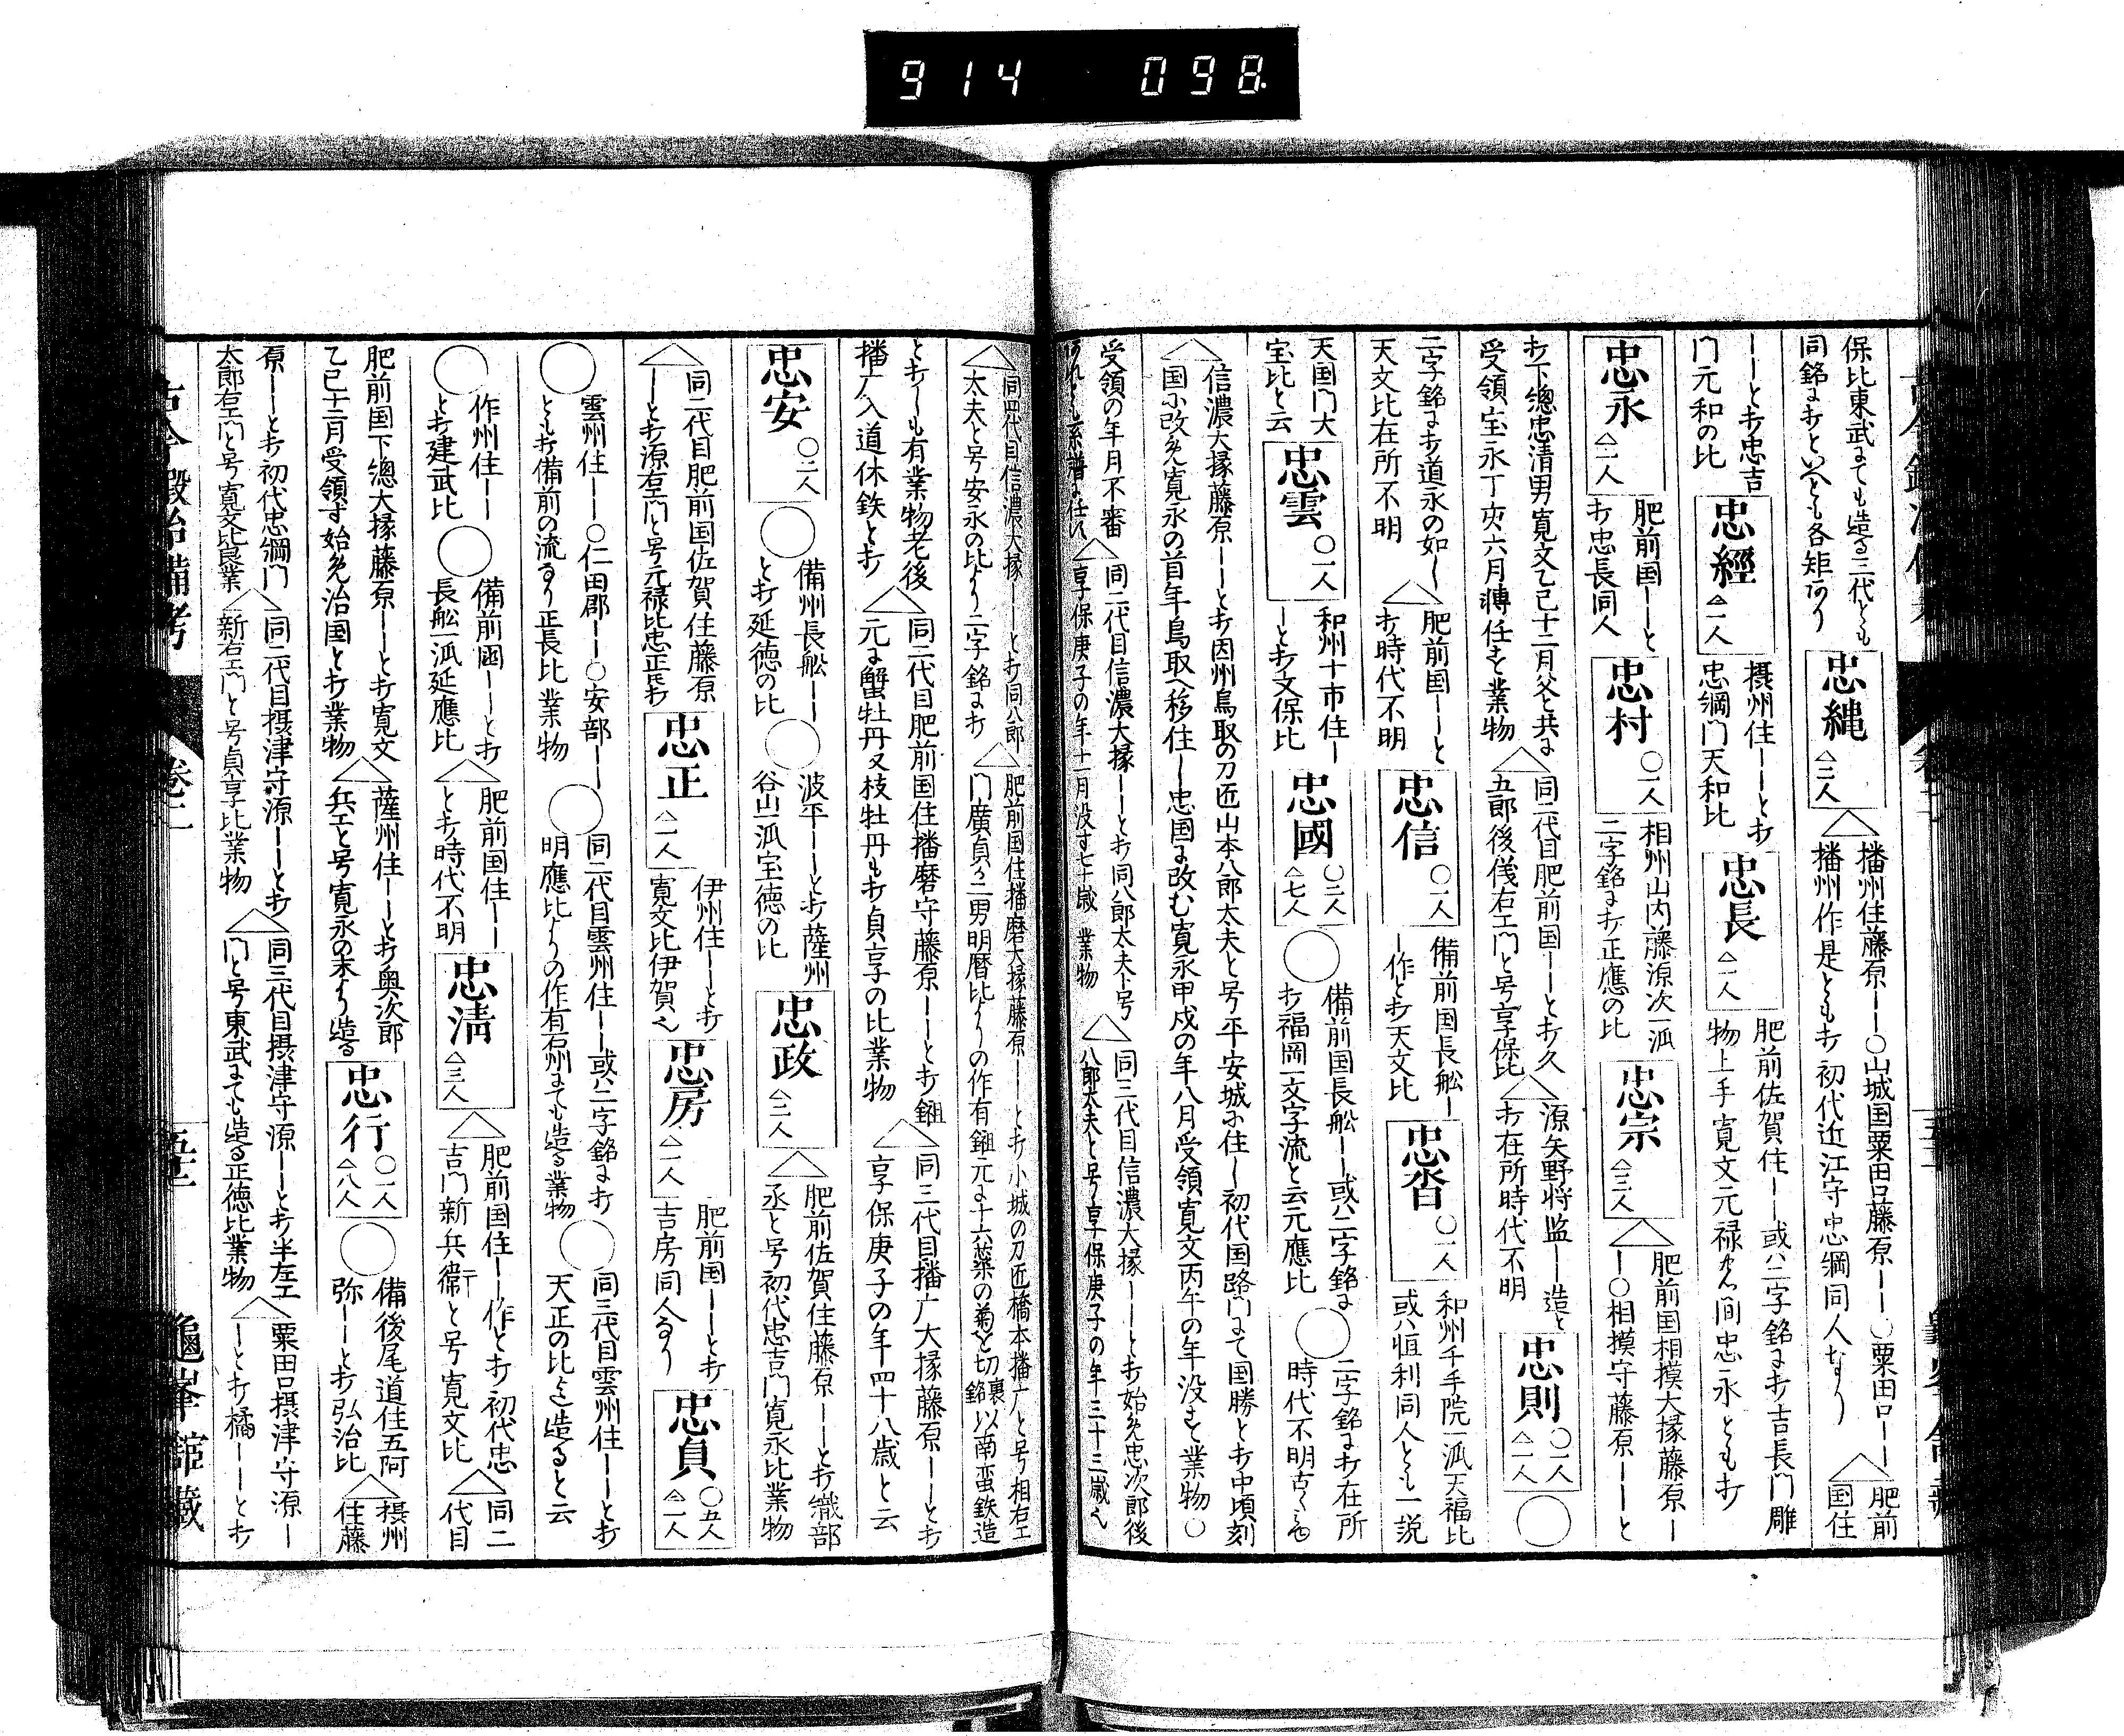 914 098
保比東武にても造る三代とも
同銘に打といへとも各矩あり
忠縄 △二人
△播州住藤原ーー○山城国粟田口藤原ーー○粟田口ーー
播州作是とも打 初代近江守忠綱同人なり
△肥前
国住
ーーと打忠吉
門元和の比
忠經 △一人
摂州住ーーと打
忠綱門天和比
忠長 △一人
肥前佐賀住ーー或ハ二字銘に打吉長門雕
物上手寛文元禄ノ間忠永とも打
忠永 △二人
肥前国ーーと
打忠長同人
忠村 ○一人
相州山内藤源次一派
二字銘に打正應の比
忠宗 △三人
△肥前国相摸大掾藤原ー
ー○相摸守藤原ーーと
打下總忠清男寛文乙巳十二月父と共に
受領宝永丁亥六月轉任すと業物
△同二代目肥前国ーーと打久
五郎後儀右エ門と号享保比
△源矢野将監ー造と
打在所時代不明
忠則 ○一人 △一人
○
二字銘に打道永の如し
天文比在所不明
△肥前国ーーと
打時代不明
忠信 ○一人
備前国長舩ー
ー作と打天文比
忠沓 ○一人
和州千手院一派天福比
或ハ恒利同人とも一説
天国門大
宝比と云
忠雲 ○一人
和州十市住ー
ーと打文保比
忠國 ○二人 △七人
○備前国長舩ーー或ハ二字銘に
打福岡一文字流と云元應比
○二字銘に打在所
時代不明古し
△信濃大掾藤原ーーと打因州鳥取の刀匠山本八郎太夫と号平安城に住し初代国路門にて国勝と打中頃刻
国に改め寛永の首年鳥取へ移住し忠国に改む寛永甲戌の年八月受領寛文丙午の年没すと業物○
受領の年月不審
あれとも系譜に任す
△同二代目信濃大掾ーーと打同八郎太夫ト号
享保庚子の年十一月没す七十歳 業物
△同三代目信濃大掾ーーと打始め忠次郎後
八郎太夫と号享保庚子の年三十三歳
△同四代目信濃大掾ーーと打同八郎
太夫と号安永の比より二字銘に打
△肥前国住播磨大掾藤原ーーと打小城の刀匠橋本播广と号相右エ
門廣貞が二男明暦比よりの作有鎺元に十六葉の菊を切裏銘以南蛮鉄造
と打しも有業物老後
播广入道休鉄と打
△同二代目肥前国住播磨守藤原ーーと打鎺
元に蟹牡丹又枝牡丹も打貞享の比業物
△同三代目播广大掾藤原ーーと打
享保庚子の年四十八歳と云
忠安 ○二人
○備州長舩ーー
と打延徳の比
○波平ーーと打薩州
谷山一派宝徳の比
忠政 △二人
△肥前佐賀住藤原ーーと打織部
丞と号初代忠吉門寛永比業物
△同二代目肥前国佐賀住藤原
ーーと打源右エ門と号元禄比忠正トモ打
忠正 △一人
伊州住ーーと打
寛文比伊賀
忠房 △一人
肥前国ーーと打
吉房同人なり
忠貞 ○五人 △一人
○雲州住ーー○仁田郡ーー○安部ーー
とも打備前の流なり正長比業物
○同二代目雲州住ーー或ハ二字銘に打
明應比よりの作有石州にても造る業物
○同三代目雲州住ーーと打
天正の比造ると云
○作州住ーー
と打建武比
○備前国ーーと打
長舩一派延應比
△肥前国住ーー
と打時代不明
忠清 △三人
△肥前国住ーー作と打初代忠
吉門新兵衛と号寛文比
△同二
代目
肥前国下總大掾藤原ーーと打寛文
乙巳十二月受領す始め治国と打業物
△薩州住ーーと打奥次郎
兵エと号寛永の末より造る
忠行 ○一人 △八人
○備後尾道住五阿
弥ーーと打弘治比
△摂州
住藤
原ーーと打初代忠綱門
太郎右エ門と号寛文比良業
△同二代目摂津守源ーーと打
新右エ門と号貞享比業物
△同三代目摂津守源ーーと打半左エ
門と号東武にても造る正徳比業物
△粟田口摂津守源ー
ーと打橘ーーと打
古今鍛冶備考 卷二 五十二 龜峯館藏